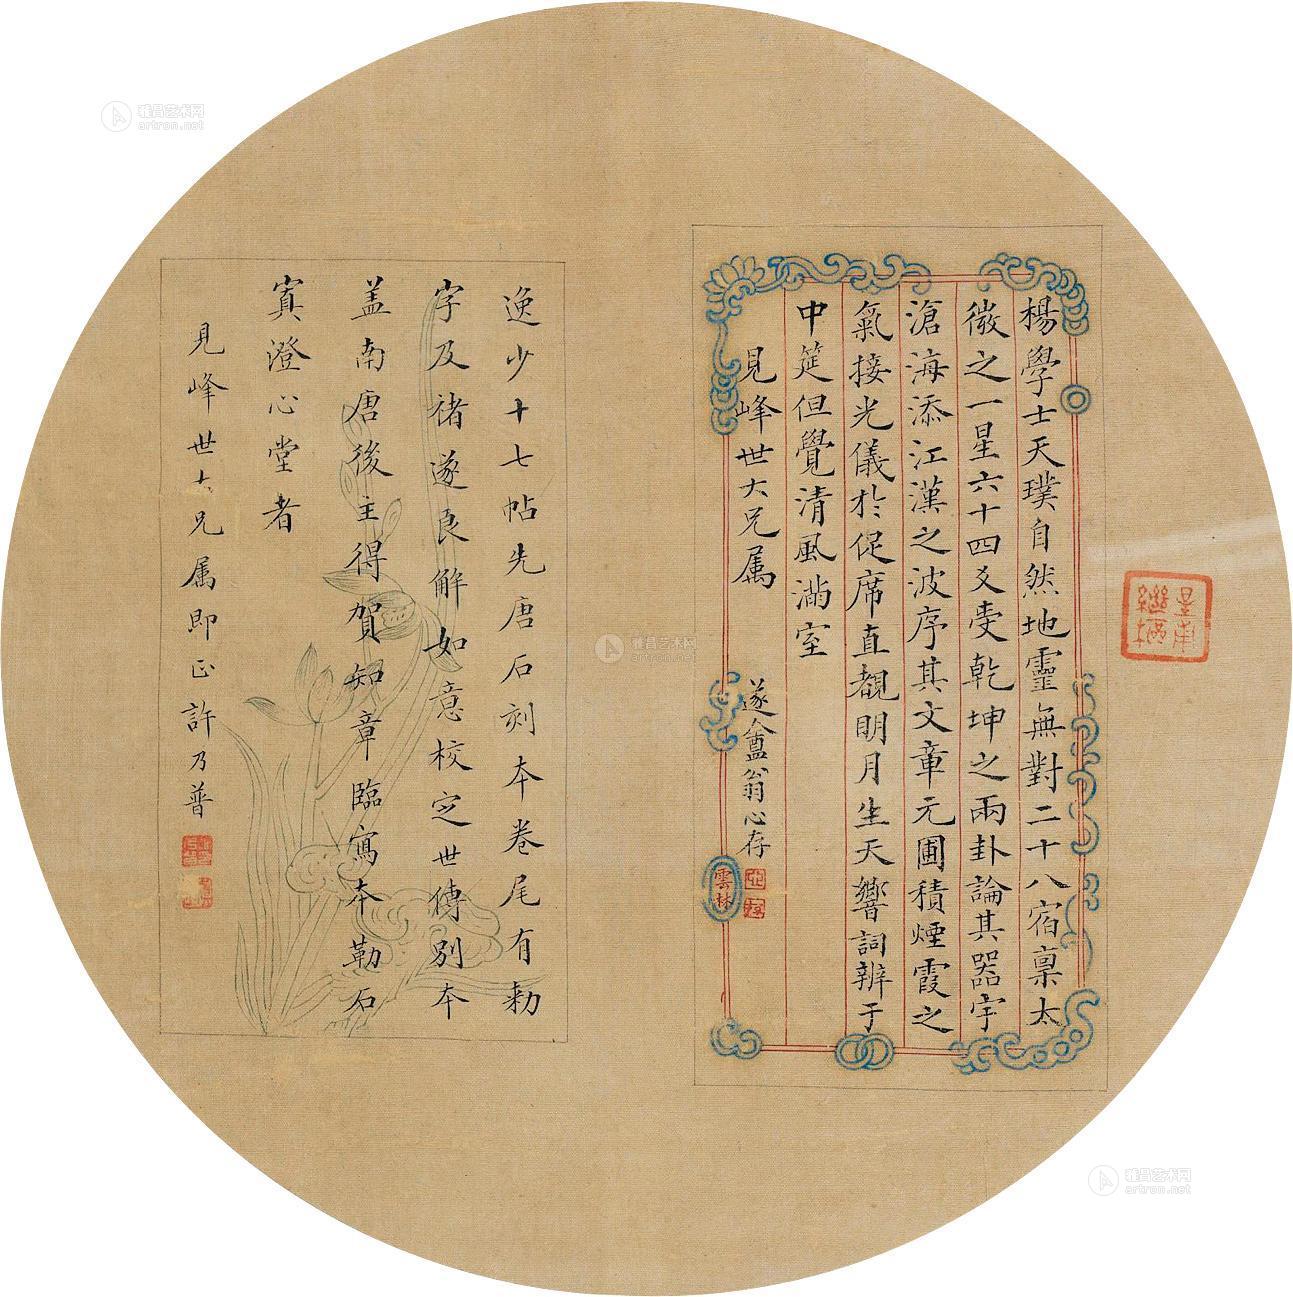 楊學士天璞自然地靈無對二十八宿稟太
微之一星六十四爻受乾坤之兩卦論其器宇
滄海添江漢之波序其文章元圃積煙霞之
氣接光儀於促席直覩明月生天響詞辨于
中筵但覺清風滿室
見峰世大兄属
遂盦翁心存
雲林
逸少十七帖先唐石刻本卷尾有勅
字及褚遂良解如意校定世傳別本
盖南唐後主得賀知章臨寫本勒石
寘澄心堂者
見峰世大兄属即正 許乃普
雅昌艺术网
artron.net
雅昌艺术网
artron.net
雅昌艺术网
artron.net